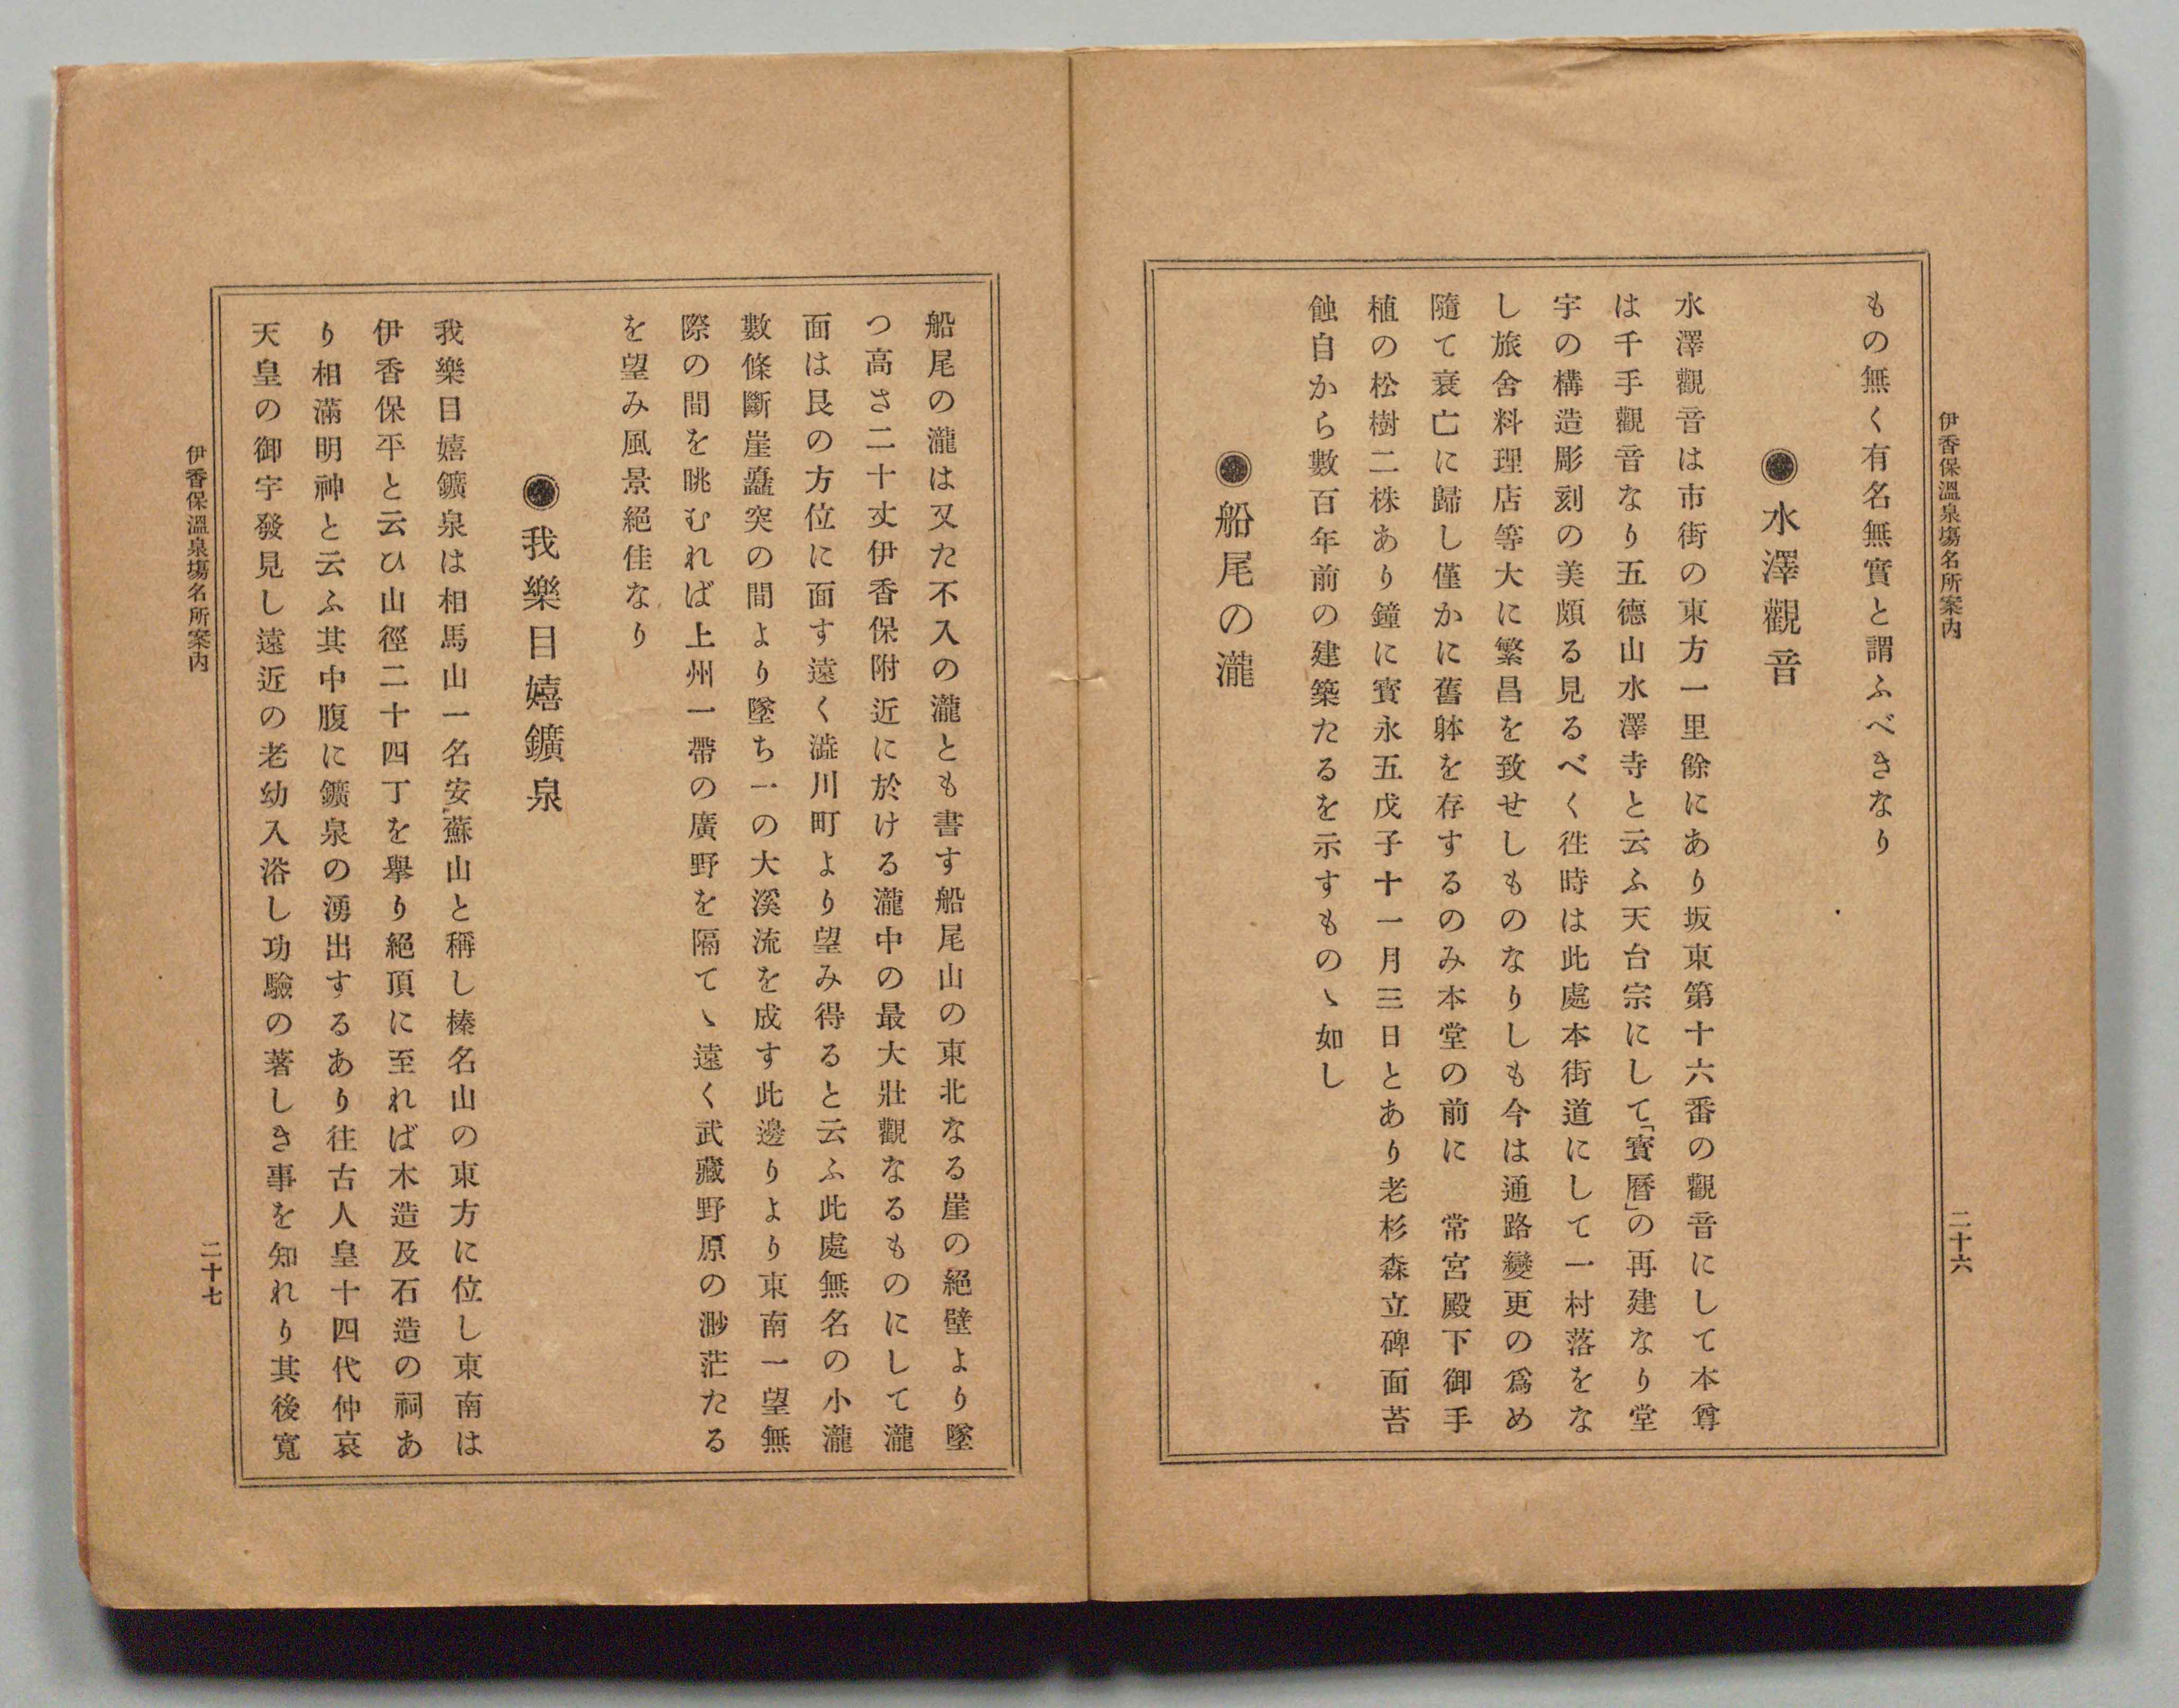 伊香保溫泉塲名所案內
二十六
もの無く有名無實と謂ふべきなり
◉水澤觀音
水澤觀音は市街の東方一里餘にあり坂東第十六番の觀音にして本尊
は千手觀音なり五德山水澤寺と云ふ天台宗にして「寶曆」の再建なり堂
宇の構造彫刻の美頗る見るべく徃時は此處本街道にして一村落をな
し旅舍料理店等大に繁昌を致せしものなりしも今は通路變更の爲め
隨て衰亡に歸し僅かに舊躰を存するのみ本堂の前に　常宮殿下御手
植の松樹二株あり鐘に寳永五戊子十一月三日とあり老杉森立碑面苔
蝕自から數百年前の建築たるを示すものゝ如し
◉船尾の瀧
船尾の瀧は又た不入の瀧とも書す船尾山の東北なる崖の絕壁より墜
つ高さ二十丈伊香保附近に於ける瀧中の最大壯觀なるものにして瀧
面は艮の方位に面す遠く澁川町より望み得ると云ふ此處無名の小瀧
數條斷崖矗突の間より墜ち一の大溪流を成す此邊りより東南一望無
際の間を眺むれば上州一帶の廣野を隔てゝ遠く武藏野原の渺茫たる
を望み風景絕佳なり
◉我樂目嬉鑛泉
我樂目嬉鑛泉は相馬山一名安蘇山と稱し榛名山の東方に位し東南は
伊香保平と云ひ山徑二十四丁を擧り絕頂に至れば木造及石造の祠あ
り相滿明神と云ふ其中腹に鑛泉の湧出するあり往古人皇十四代仲哀
天皇の御宇發見し遠近の老幼入浴し功驗の著しき事を知れり其後寬
伊香保溫泉塲名所案內
二十七